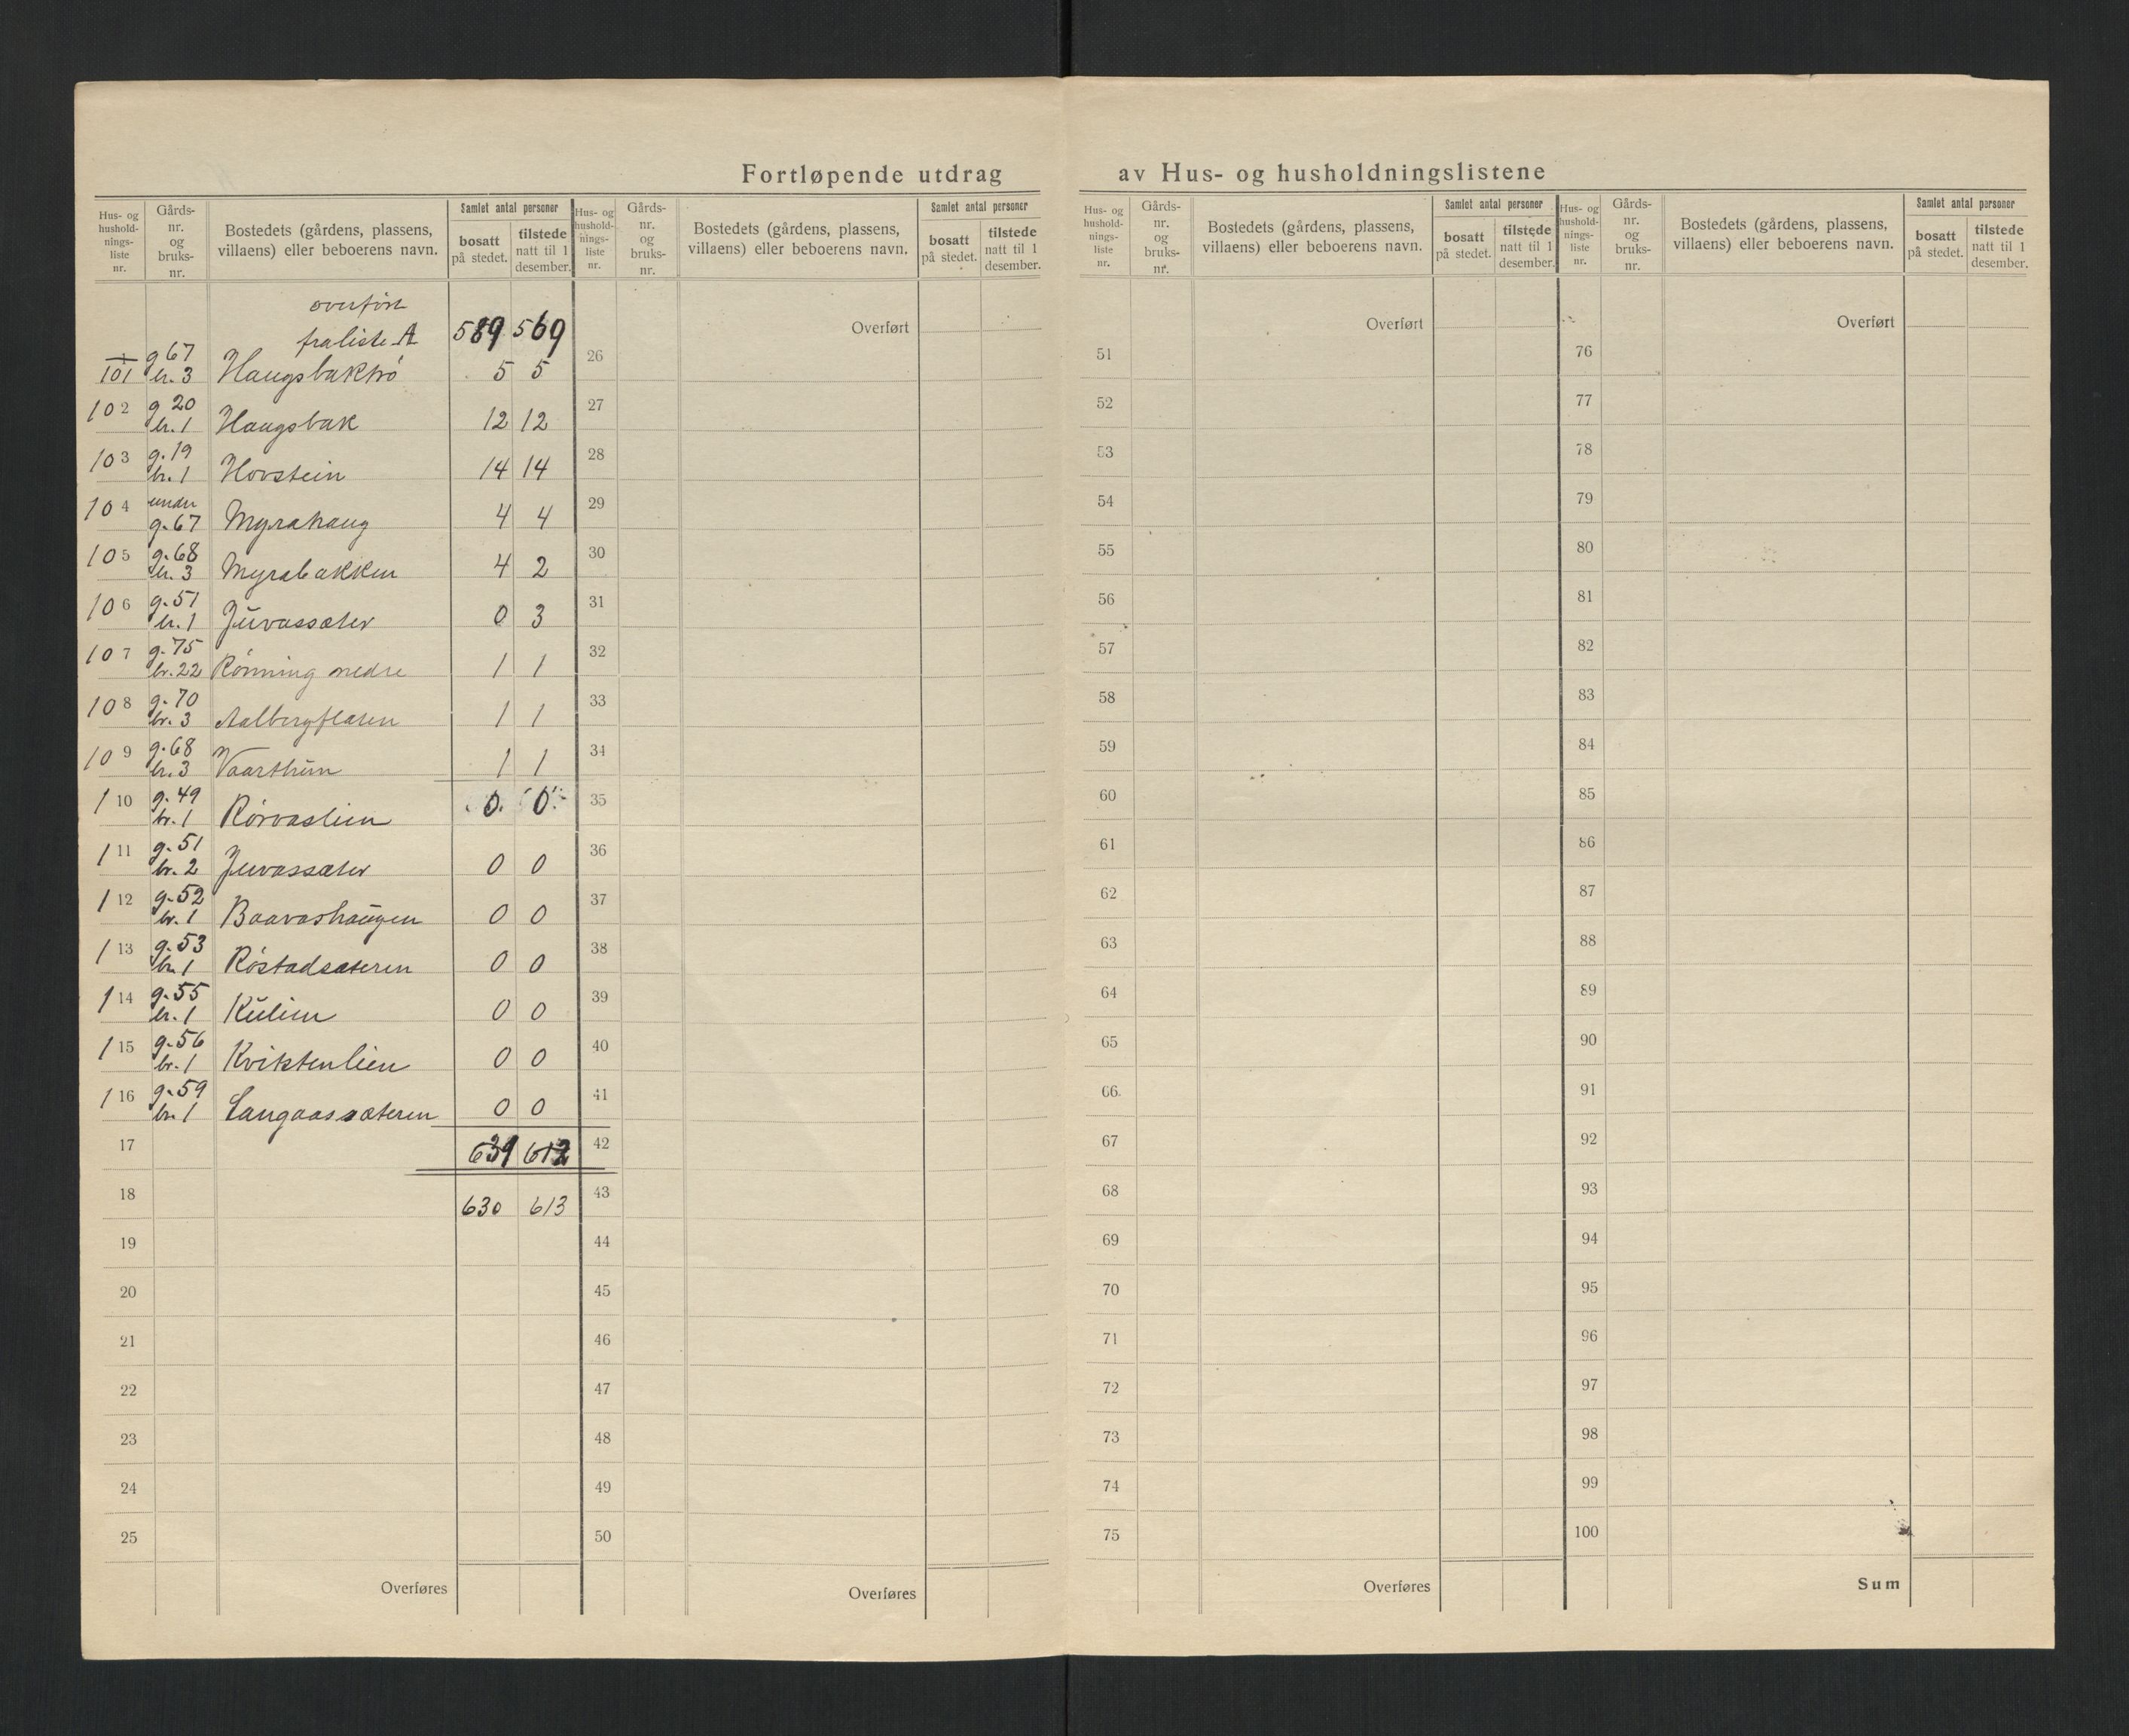 Fortløpende utdrag av Hus- og husholdningslistene
Hus- og hushold-nings-liste nr. Gårds-nr. og bruks-nr. Bostedets (gårdens, plassens, villaens) eller beboerens navn. Samlet antal personer bosatt på stedet. tilstede natt til 1 desember.
Hus- og hushold-nings-liste nr. Gårds-nr. og bruks-nr. Bostedets (gårdens, plassens, villaens) eller beboerens navn. Samlet antal personer bosatt på stedet. tilstede natt til 1 desember.
Hus- og hushold-nings-liste nr. Gårds-nr. og bruks-nr. Bostedets (gårdens, plassens, villaens) eller beboerens navn. Samlet antal personer bosatt på stedet. tilstede natt til 1 desember.
Hus- og hushold-nings-liste nr. Gårds-nr. og bruks-nr. Bostedets (gårdens, plassens, villaens) eller beboerens navn. Samlet antal personer bosatt på stedet. tilstede natt til 1 desember.
overført
fra liste A 589 569
101 g 67 br. 3 Haugsbaktrø 5 5
102 g 20 br. 1 Haugsbak 12 12
103 g. 19 br. 1 Hovstein 14 14
104 under g. 67 Myrahaug 4 4
105 g. 68 br. 3 Myrabakken 4 2
106 g. 51 br. 1 Juvassæter 0 3
107 g. 75 br. 22 Rønning nedre 1 1
108 g. 70 br. 3 Aalbergflaten 1 1
109 g. 68 br. 3 Vaartheim 1 1
110 g. 49 br. 1 Rørvaslien 0 0
111 g. 51 br. 2 Juvassæter 0 0
112 g. 52 br. 1 Baavashaugen 0 0
113 g. 53 br. 1 Røstadsæteren 0 0
114 g. 55 br. 1 Kulien 0 0
115 g. 56 br. 1 Kviktenlien 0 0
116 g. 59 br. 1 Langaassæteren 0 0
17
18 630 613
19
20
21
22
23
24
25
Overføres
Overført
26
27
28
29
30
31
32
33
34
35
36
37
38
39
40
41
42
43
44
45
46
47
48
49
50
Overføres
Overført
51
52
53
54
55
56
57
58
59
60
61
62
63
64
65
66
67
68
69
70
71
72
73
74
75
Overføres
Overført
76
77
78
79
80
81
82
83
84
85
86
87
88
89
90
91
92
93
94
95
96
97
98
99
100
Sum